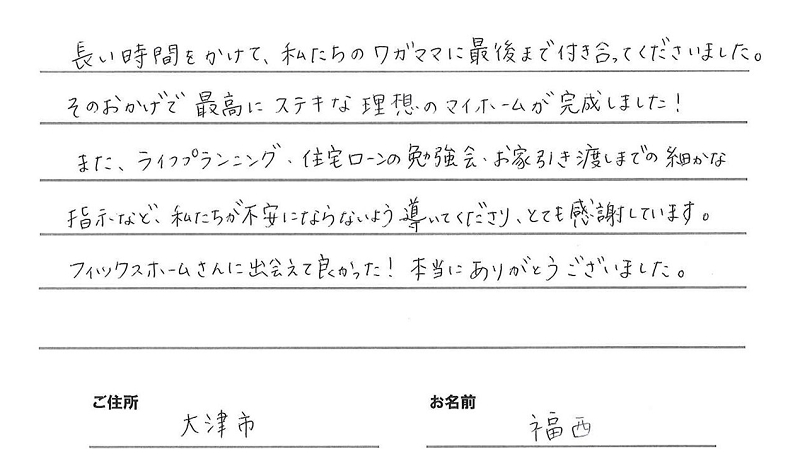 長い時間をかけて、私たちのワガママに最後まで付き合ってくださいました。
そのおかげで最高にステキな理想のマイホームが完成しました！
また、ライフプランニング、住宅ローンの勉強会、お家引き渡しまでの細かな
指示など、私たちが不安にならないよう導いてくださり、とても感謝しています。
フィックスホームさんに出会えて良かった！本当にありがとうございました。
ご住所 お名前
大津市 福西